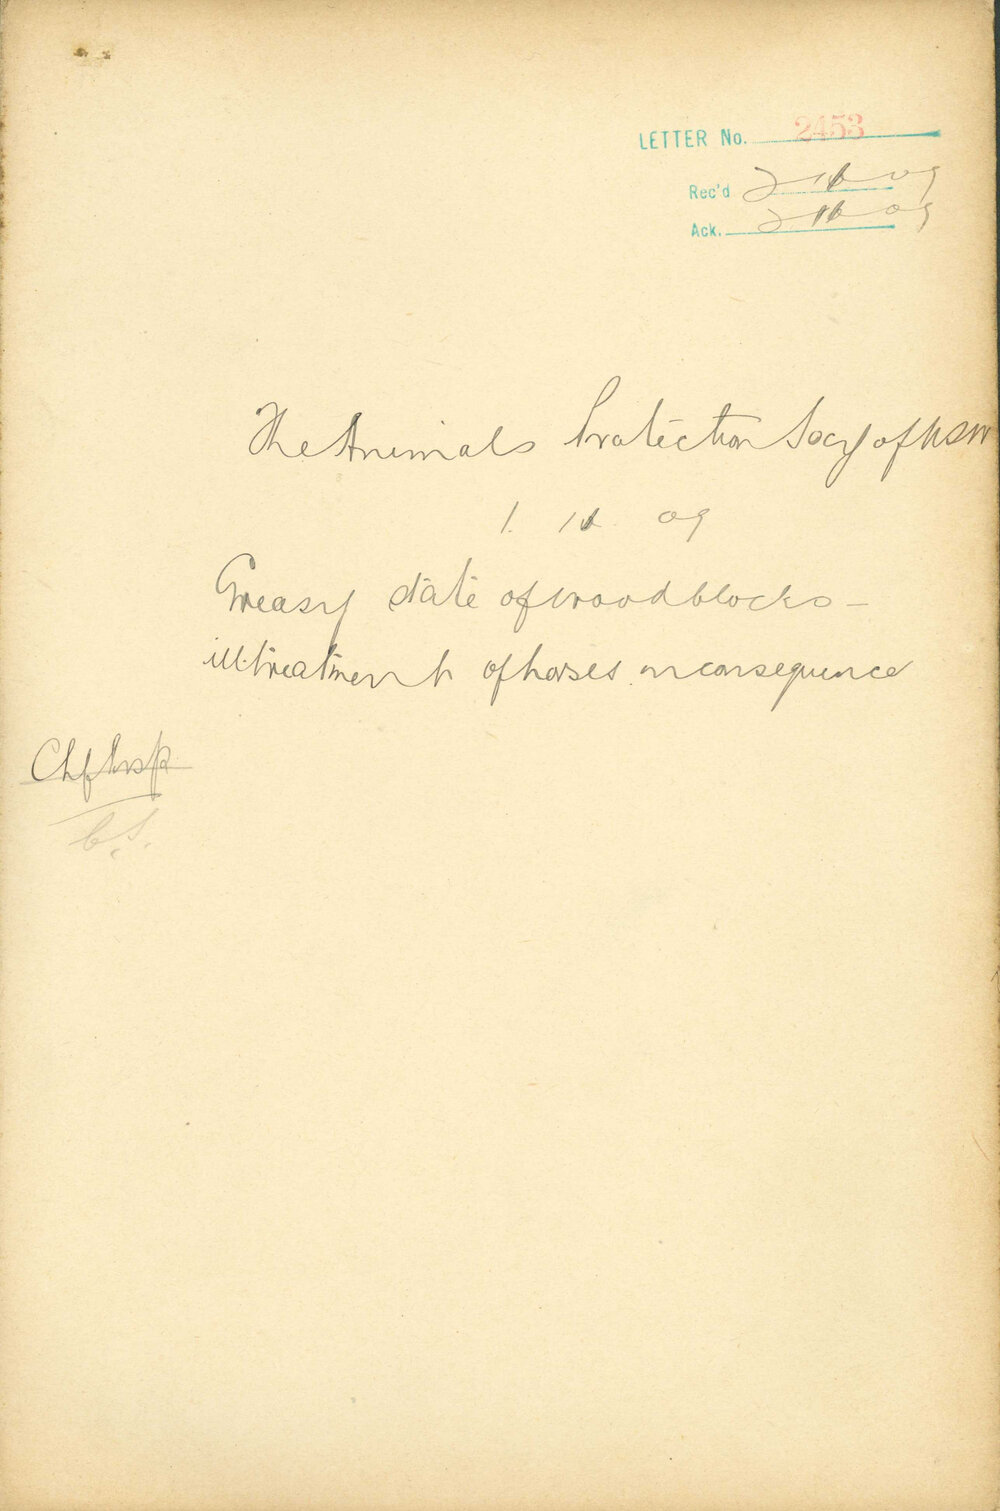 LETTER No. 2453
Rec'd 2 - 11 - 09
Ack. 2 - 11 - 09
The Animals Protection Socy of NSW
1. 11. 09
Greasy state of woodblocks -
ill-treatment of horses in consequence
Chf Insp
C.S.